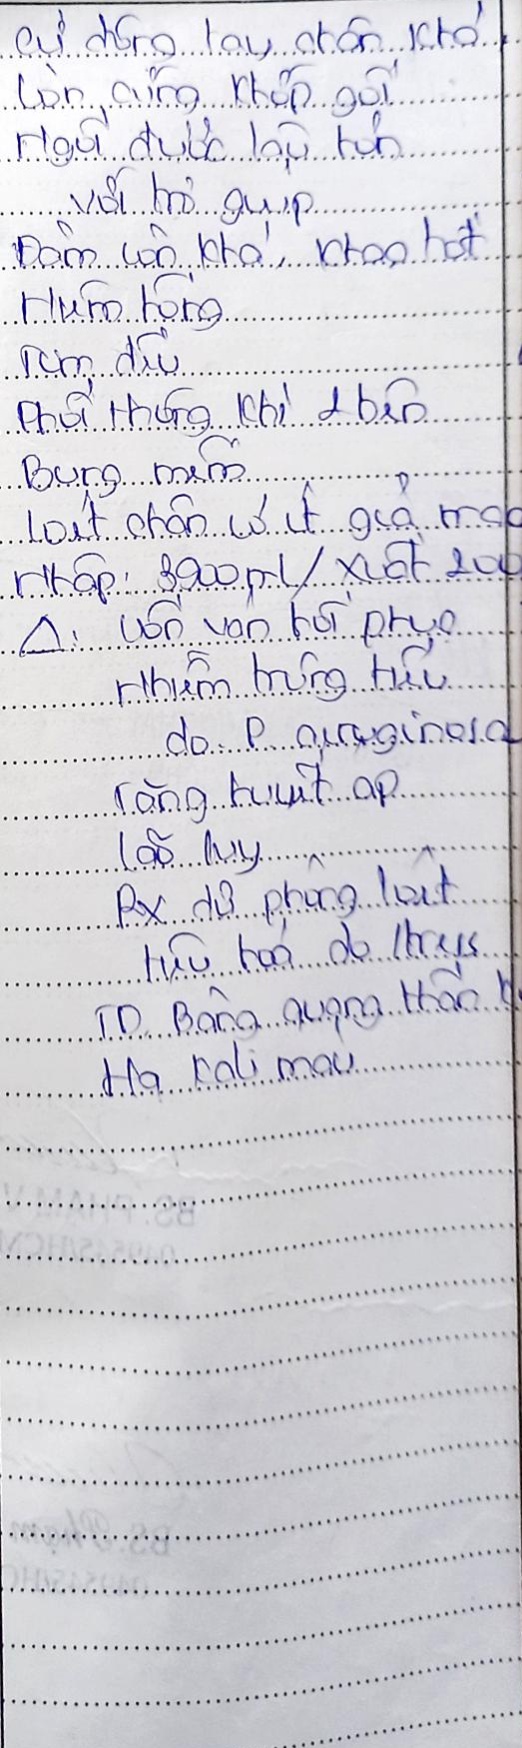 Cử động tay chân khá
Còn cứng khớp gối
Ngồi được lâu hơn
với trợ giúp
Đàm còn khá, khạc tốt
Niêm hồng
Tim đều
Phổi thông khí 2 bên
Bụng mềm
Loét chân có ít giả mạc
Nhập: 3900ml/xuất 200
Δ: Uốn ván hồi phục
Nhiễm trùng tiểu
do P. aeruginosa
Tăng huyết áp
Lão suy
Rx dự phòng loét
tiêu hoá do stress
TD Bàng quang thần k
Hạ Kali máu